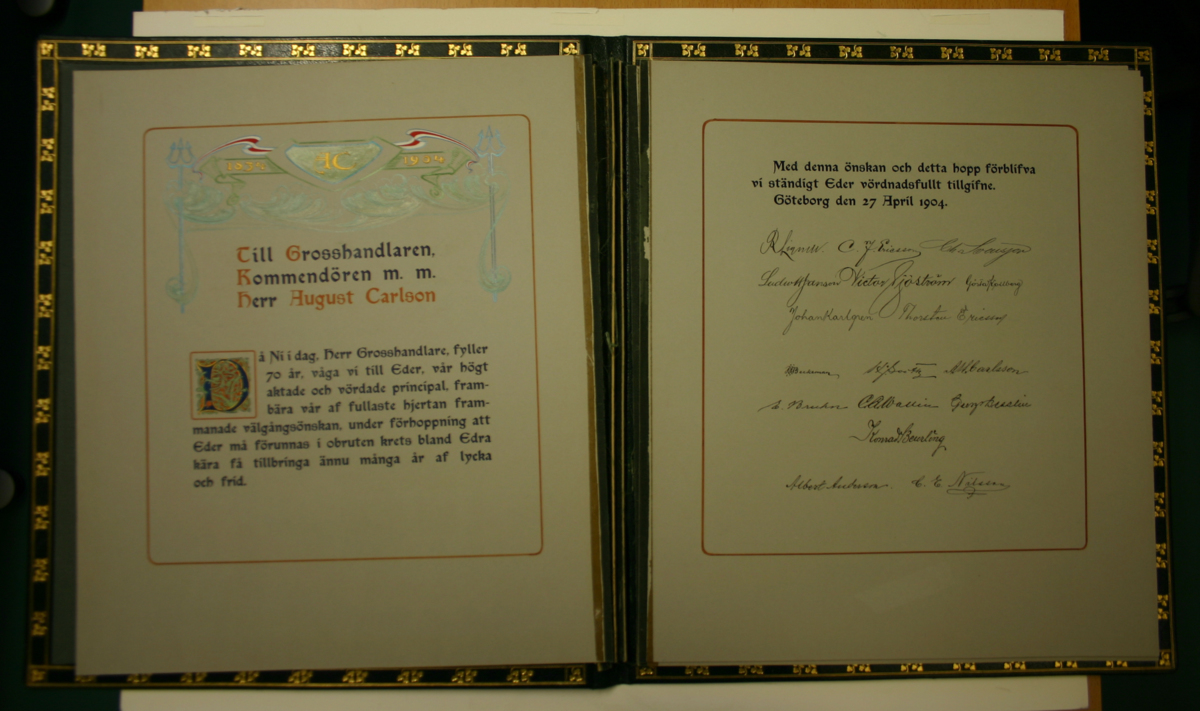 AC
Till Grosshandlaren,
Kommendören m. m.
Herr August Carlson
Då Ni i dag, Herr Grosshandlare, fyller
70 år, våga vi till Eder, vår högt
aktade och vördade principal, fram-
bära vår af fullaste hjertan fram-
manade välgångsönskan, under förhoppning att
Eder må förunnas i obruten krets bland Edra
kära få tillbringa ännu många år af lycka
och frid.
Med denna önskan och detta hopp förblifva
vi ständigt Eder vördnadsfullt tillgifne.
Göteborg den 27 April 1904.
C. J. Ericsson
Victor Sjöström
Johan Karlgren Thorsten Ericsson
Konrad Beurling
Albert Andersson. C. E. Nilsson